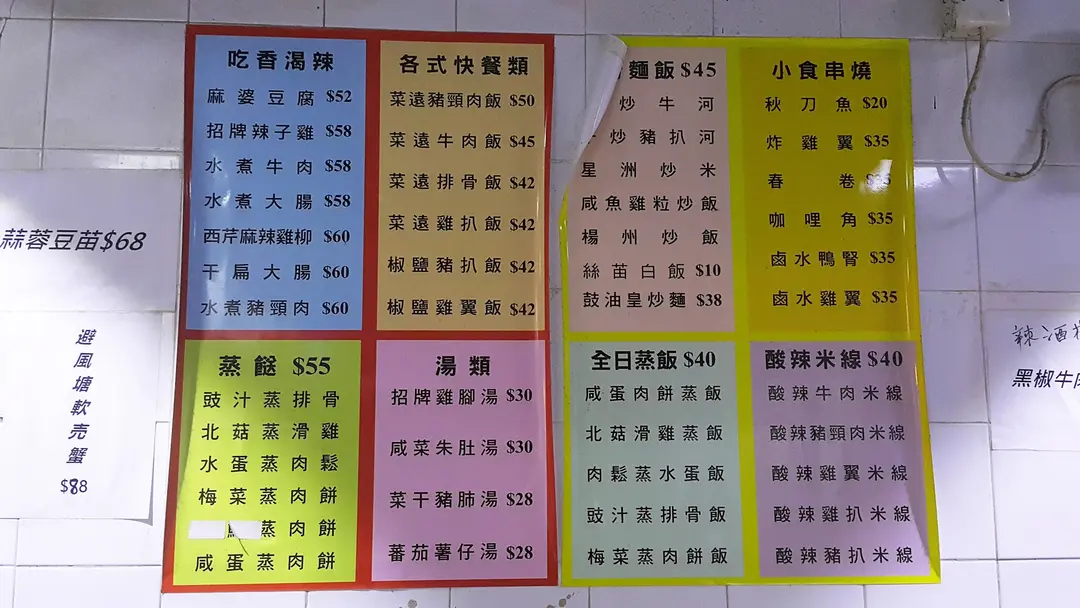 蒜蓉豆苗$68
避風塘軟壳蟹
$88
吃香渴辣
麻婆豆腐 $52
招牌辣子雞 $58
水煮牛肉 $58
水煮大腸 $58
西芹麻辣雞柳 $60
干扁大腸 $60
水煮豬頸肉 $60
各式快餐類
菜遠豬頸肉飯 $50
菜遠牛肉飯 $45
菜遠排骨飯 $42
菜遠雞扒飯 $42
椒鹽豬扒飯 $42
椒鹽雞翼飯 $42
蒸餸 $55
豉汁蒸排骨
北菇蒸滑雞
水蛋蒸肉鬆
梅菜蒸肉餅
蒸肉餅
咸蛋蒸肉餅
湯類
招牌雞腳湯 $30
咸菜朱肚湯 $30
菜干豬肺湯 $28
蕃茄薯仔湯 $28
麵飯 $45
炒牛河
炒豬扒河
星洲炒米
咸魚雞粒炒飯
楊州炒飯
絲苗白飯 $10
鼓油皇炒麵 $38
小食串燒
秋刀魚 $20
炸雞翼 $35
春卷 $35
咖哩角 $35
鹵水鴨腎 $35
鹵水雞翼 $35
全日蒸飯 $40
咸蛋肉餅蒸飯
北菇滑雞蒸飯
肉鬆蒸水蛋飯
豉汁蒸排骨飯
梅菜蒸肉餅飯
酸辣米線 $40
酸辣牛肉米線
酸辣豬頸肉米線
酸辣雞翼米線
酸辣雞扒米線
酸辣豬扒米線
辣酒
黑椒牛